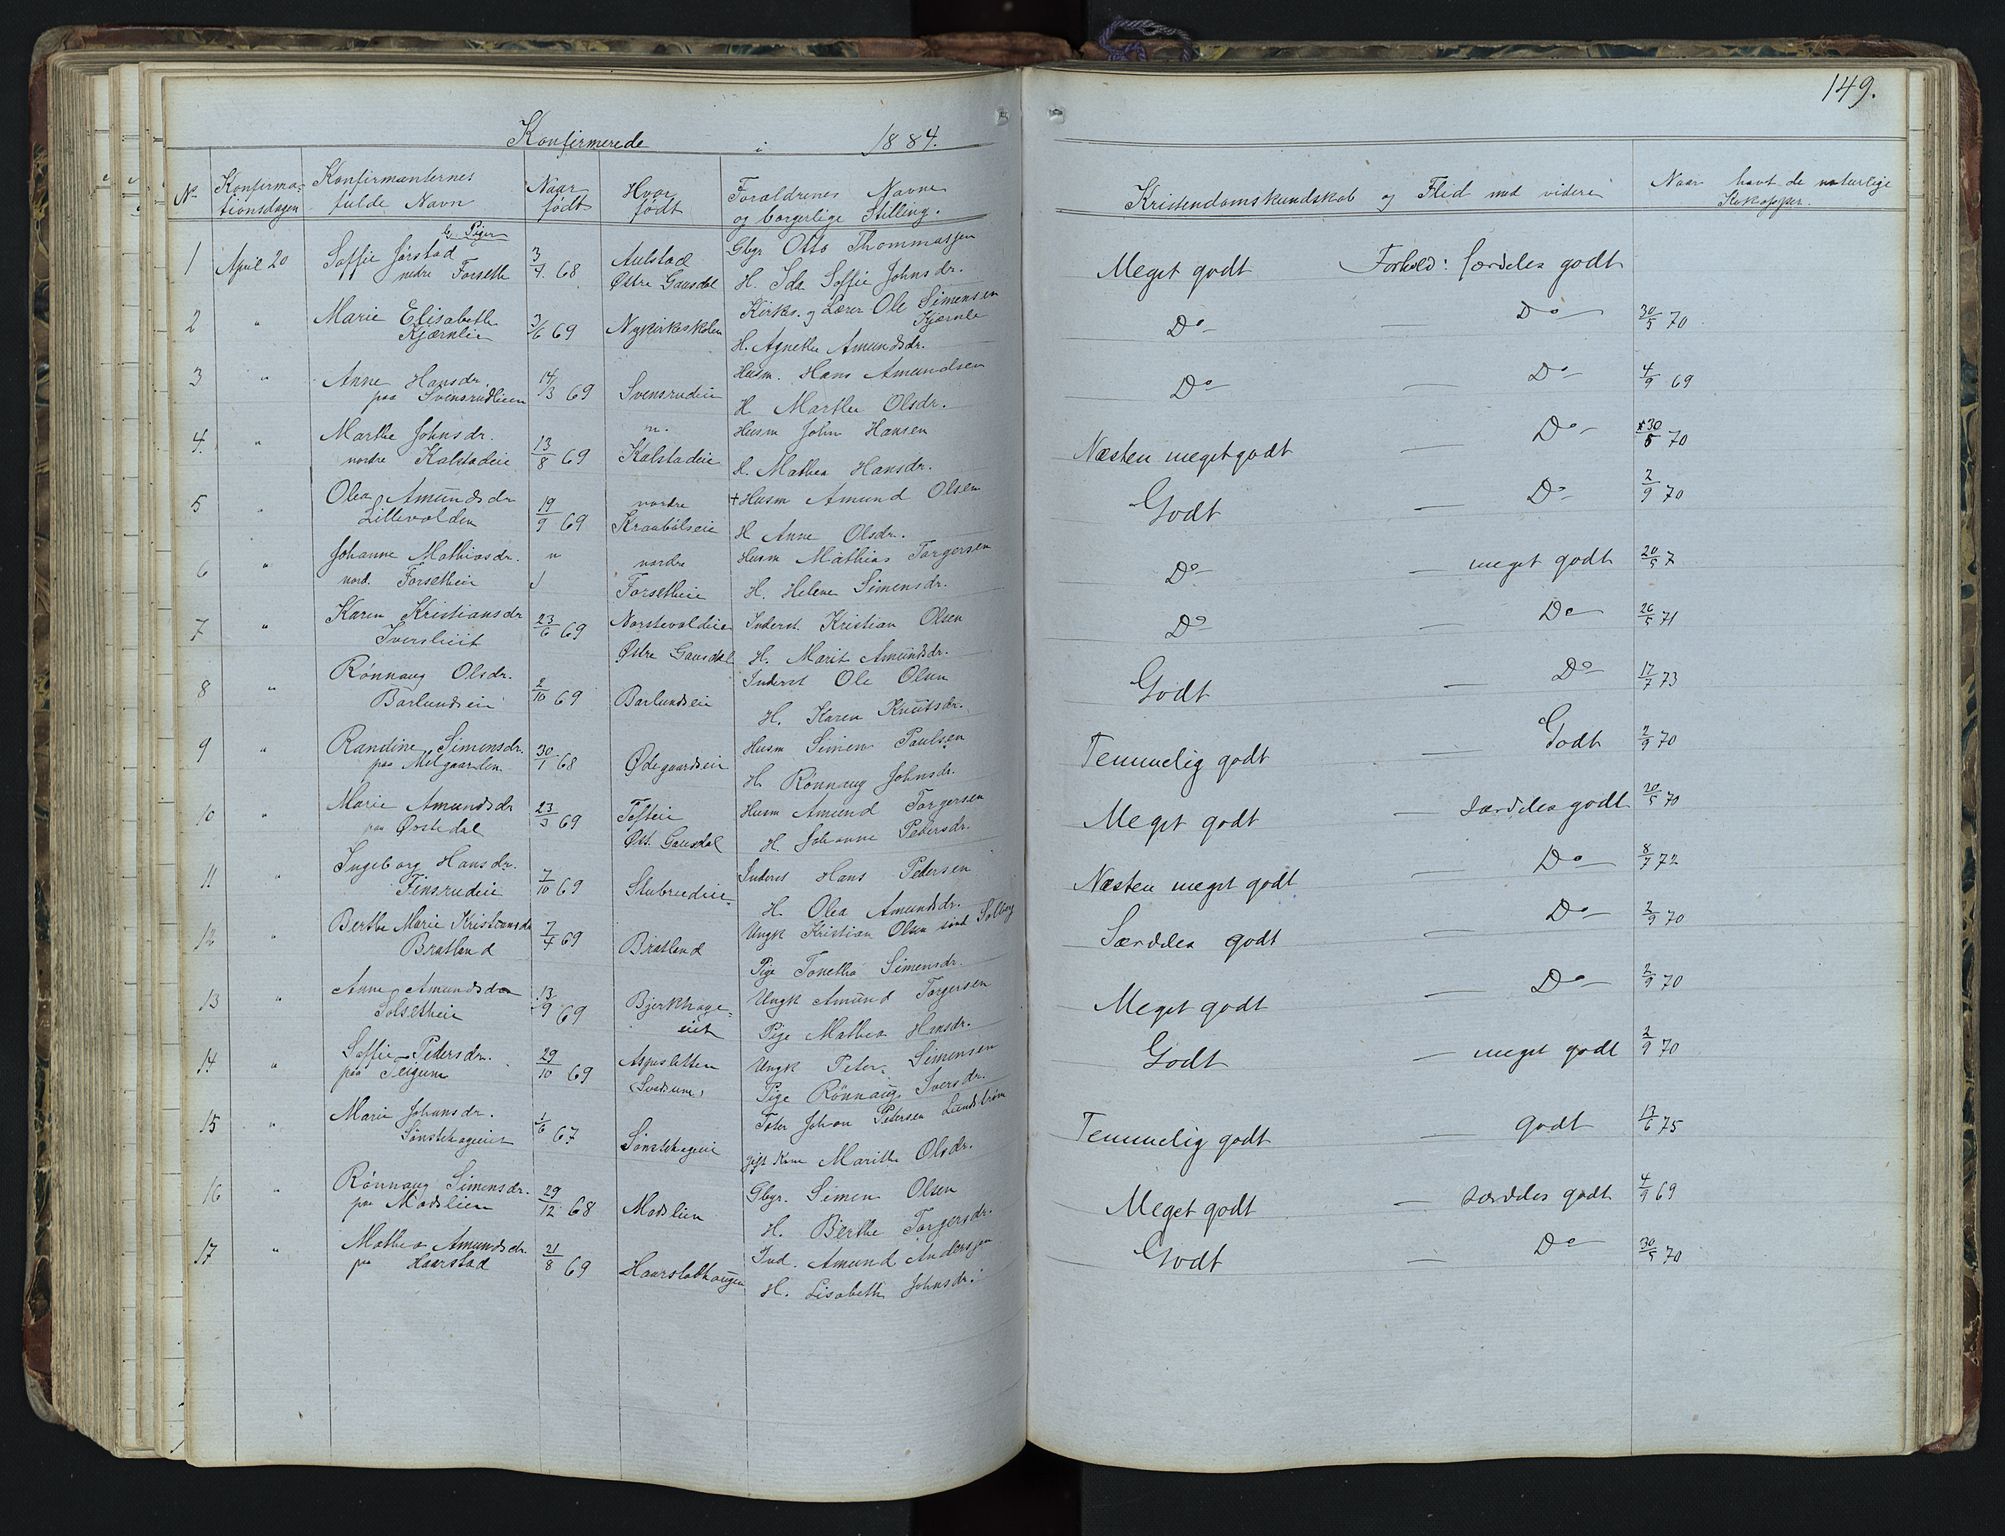 149.
Konfirmerede i 1884.
No
Konfirma-
tionsdagen
Konfirmanternes
fulde Navn
Naar
født
Hvor
født
Forældrenes Navne
og borgerlige Stilling.
Kristendomskundskab og Flid med videre
Naar havt de naturlige
Kokopper.
b, Piger
1 April 20 Soffie Jørstad 3/7 68 Aulstad Gbgr. Otto Thommassen Meget godt Forhold: særdeles godt
nedre Forseth Østre Gausdal H. Ida Soffie Johnsdr.
2 " Marie Elisabeth 3/6 69 Nykirkeskolen Kirkes. og Lærer Ole Simensen Kjærnli Do — Do — 30/5 70
Kjærnlie H. Agnethe Amundsdr.
3 " Anne Hansdr. 14/3 69 Svensrudeie Husm. Hans Amundsen Do — Do — 4/9 69
paa Svensrudlien H. Marthe Olsdr.
4. " Marthe Johnsdr. 13/8 69 n. Husm John Hansen Næsten meget godt — Do — 30/5 70
nordre Kalstadeie Kalstadeie H. Mathea Hansdr.
5 " Olea Amundsdr 19/9 69 nordre + Husm Amund Olsen Godt — Do — 2/9 70
Lillevolden Kraabølseie H Anne Olsdr.
6 " Johanne Mathiasdr. nordre Husm Mathias Torgersen Do — meget godt 20/5 7
nord. Forsetheie Forsetheie H. Helene Simensdr.
7 " Karen Kristiansdr 23/6 69 Norstevoldeie Inderst. Kristian Olsen Do — Do — 26/5 71
Iverslieit Østre Gausdal H. Marit Amundsdr.
8 " Rønnaug Olsdr. 2/10 69 Barlundseie Inderst Ole Olsen Godt — Do — 17/7 73
Barlundseie H. Karen Knutsdr.
9 " Randine Simensdr. 30/1 68 Ødegaardseie Husm Simen Paulsen Temmelig godt — Godt 2/9 70
paa Melgaarden H. Rønnaug Johnsdr.
10 " Marie Amundsdr 23/3 69 Tofteie Husm Amund Torgersen Meget godt — særdeles godt 20/5 70
paa Ørstedal Øst. Gausdal H. Johanne Pedersdr.
11 " Ingeborg Hansdr. 7/10 69 Stubrudeie Inderst Hans Petersen Næsten meget godt — Do — 8/7 72
Finsrudeie H. Olea Amundsdr.
12 " Berthe Marie Kristiansdr 7/4 69 Bratland Ungk Kristian Olsen Solberg Særdeles godt — Do — 2/9 70
Bratland Pige Tonetha Simensdr.
13 " Anne Amundsdr 13/9 69 Bjerkhage- Ungk Amund Torgersen Meget godt — Do — 2/9 70
Solsetheie eiet Pige Mathea Hansdr.
14 " Soffie Pedersdr. 29/10 69 Aspesletten Ungk Peter Simensen Godt — meget godt 2/9 70
paa Svatsum, Pige Rønnaug Iversdr.
15 " Marie Johansdr. 1/6 67 Sønstehageeie Fater Johan Petersen Lundstrøm Temmelig godt — godt 13/6 75
Sønstehageeiet gift Kone Marithe Olsdr.
16 " Rønnaug Simensdr. 29/12 68 Modslien Gbgr. Simen Olsen Meget godt — særdeles godt 4/9 69
paa Modslien H. Berthe Torgersdr.
17 " Mathea Amundsdr. 21/8 69 Haarstadhaugen Ind. Amund Anderssen Godt — Do — 30/5 70
paa Haarstad H. Lisabeth Johnsdr.